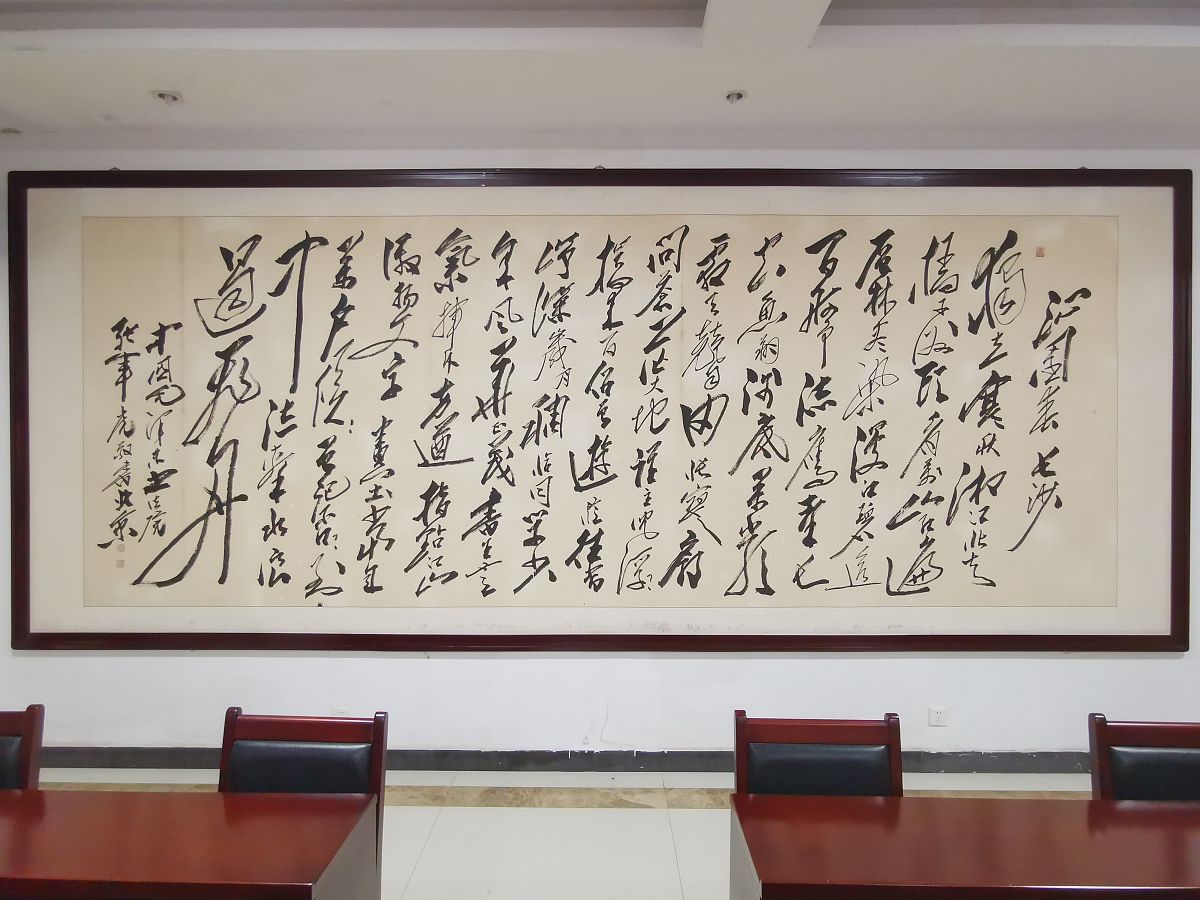 沁园春 长沙
独立寒秋湘江北去
橘子洲头看万山红遍
层林尽染漫江碧透
百舸争流鹰击长
空鱼翔浅底万类
霜天竞自由怅寥廓
问苍茫大地谁主沉浮
携来百侣曾游忆往昔
峥嵘岁月稠恰同学少
年风华正茂书生意
气挥斥方遒指点江山
激扬文字粪土当年
万户侯曾记否到
中流击水浪
遏飞舟
毛泽东
书北京